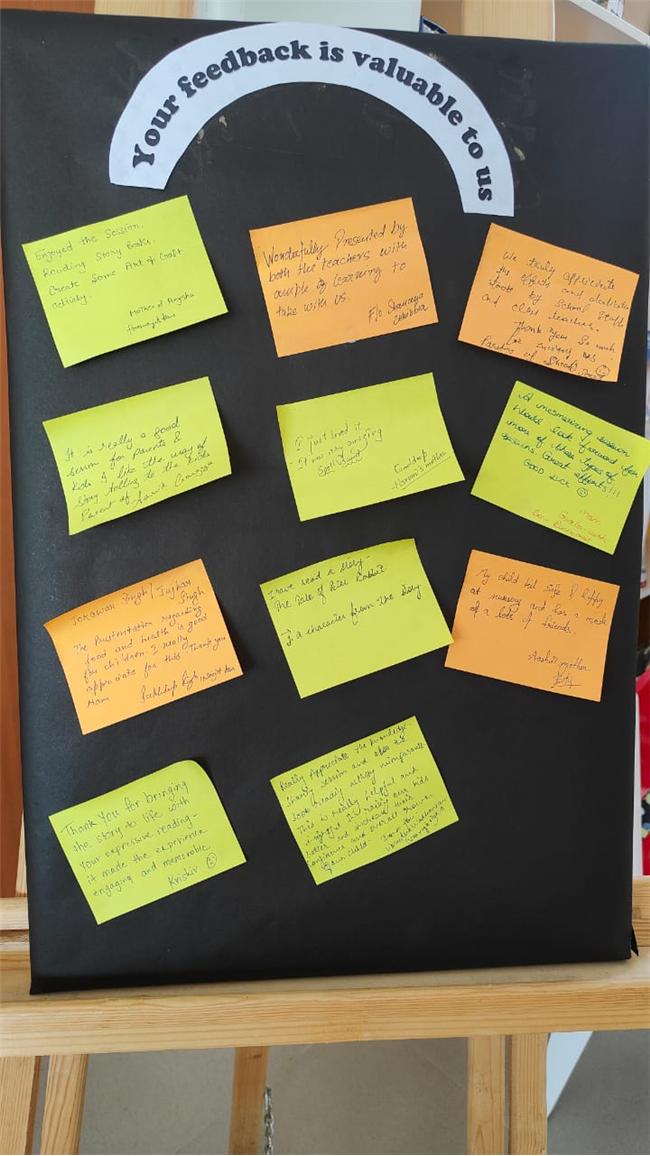 Your feedback is valuable to us
Enjoyed the Session.
Reading Story Books.
Create Some Art & Craft
activity.
Mother of
Wonderfully Presented by
both the teachers with
ample of learning to
take with us.
F/o
We truly appreciate
the efforts and dedication
by school staff
and class teachers.
Thank you so much
for inviting us
Parents of
It is really a good
session for Parents &
Kids I like the way of
story telling to the kids
Parent of
I just loved it
It was very amazing
mother
A mesmerizing session
Would look forward for
more of these types of
sessions. Great efforts!!!
Good luck
From
Jorawar Singh / Jujhar
Singh
The Presentation regarding
food and health is good
for children. I really
appreciate for this Thank you
Mam
I have read a story-
The Tale of Peter Rabbit
a character from the story
My child feel safe & happy
at nursery and has a made
of a lots of friends.
mother
Thank You for bringing
the story to life with
your expressive reading-
it made the experience
engaging and memorable
Really Appreciate the knowledge
sharing session and also the
book reading activity
This is really helpful and
our kids
better and increase their
confidence and overall grown
your child.